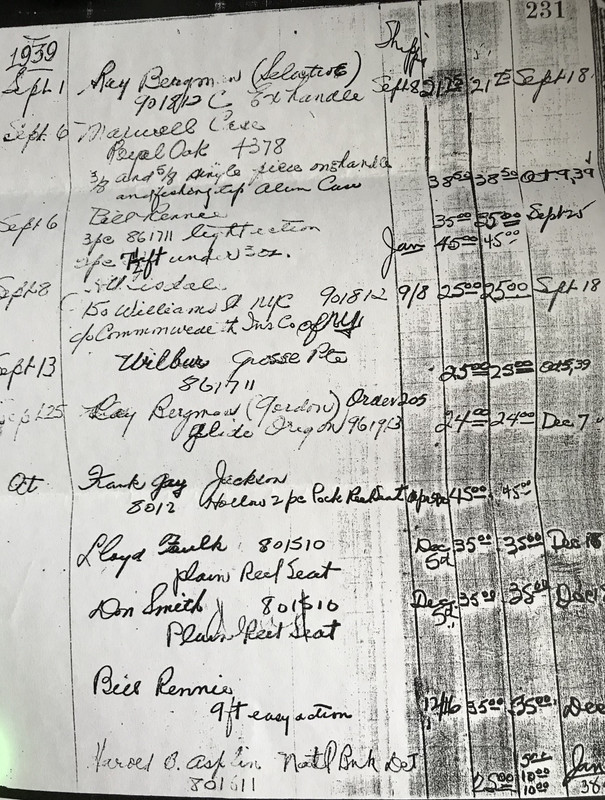 231
1939 Shipp
Sept 1 Ray Bergman (Selective) Sept 8 21 75 21 75 Sept 18
901812 C Ex handle
Sept. 6 Maxwell Case
Royal Oak 4378
3/8 and 5/8 single piece on handle 38 50 38 50 Oct 9, 39
and fishing tip Alum Case
Sept 6 Bill Rennie 35 00 35 00 Sept 25
3pc 861711 light action Jan 45 00 45 00
2pc 7ft under 3 oz.
Sept 8
150 Williams St NYC 901812 9/8 25 00 25 00 Sept 18
c/o Commonwealth Ins Co of NY
Sept 13 Wilbur Grosse Pte 25 00 25 00 Oct 5, 39
861711
Sept 25 Ray Bergman (Gordon) Order 205
Glide Oregon 961913 24 00 24 00 Dec 7
Oct Frank Gay Jackson
8012 Hollow 2 pc Pack Reel Seat 45 00 45 00
Lloyd Faulk 801510 Dec 5th 35 00 35 00 Dec 18
plain Reel Seat
Don Smith 801510 Dec 5th 35 00 35 00 Dec
Plain Reel Seat
Bill Rennie
9 ft easy action 12/16 35 00 35 00 Dec
Harold O. Asplin Natl Bnk Det 5 00 Jan
801611 25 00 10 00 38
10 00